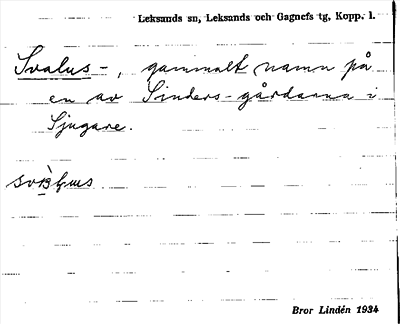 Leksands sn, Leksands och Gagnefs tg, Kopp. l.
Svalus -, gammalt namn på
en av Sinders-gårdarna i
Sjugare.
Bror Lindén 1934